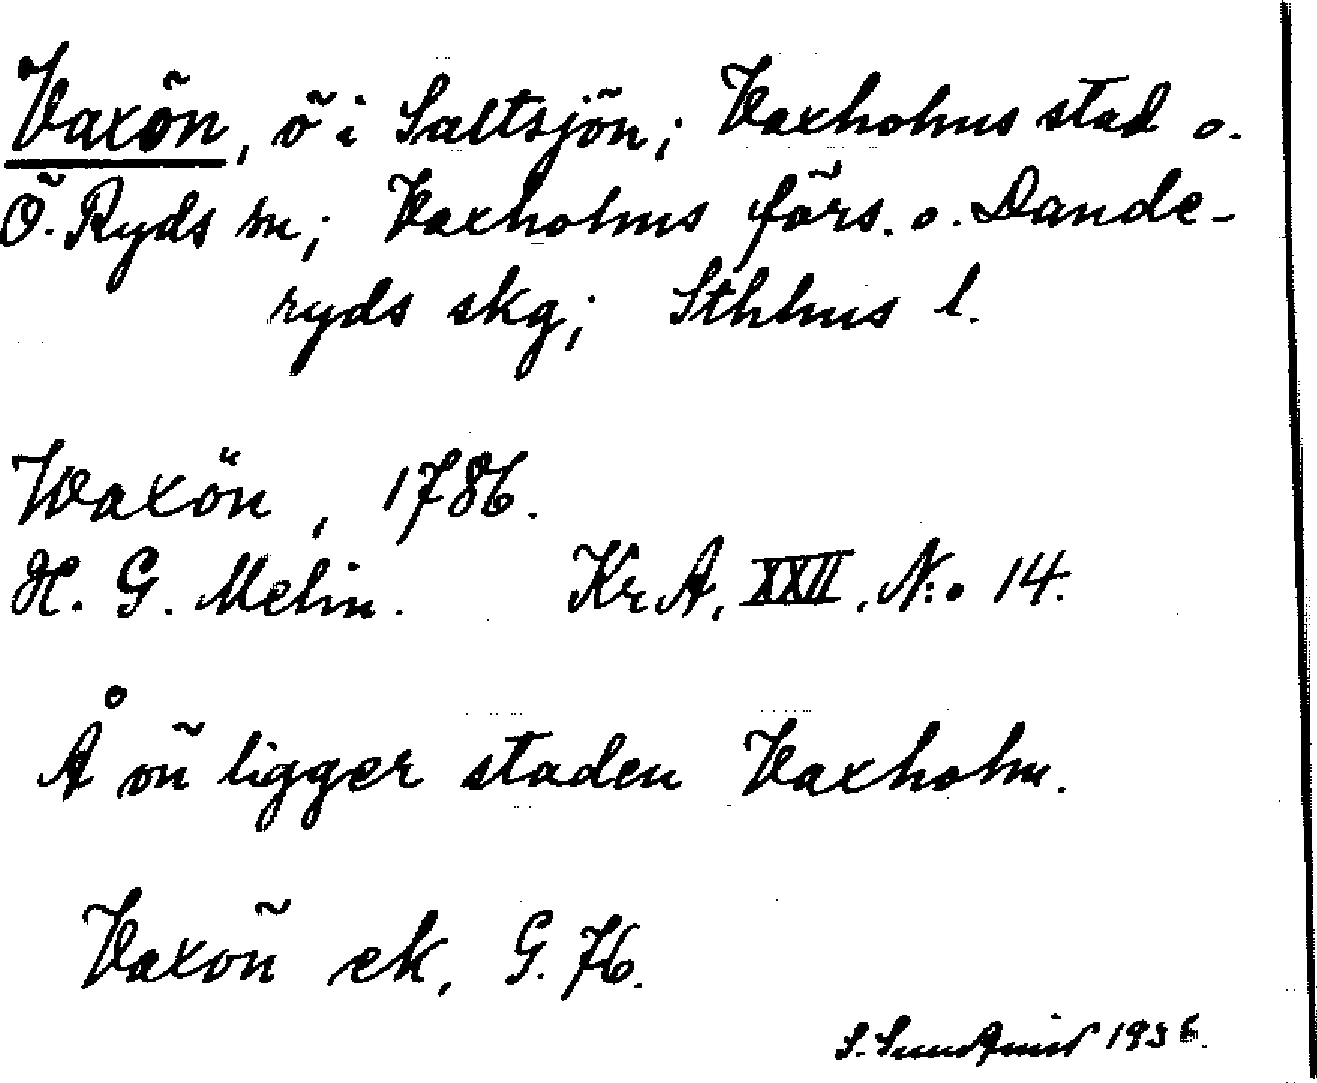 Vaxön, ö i Saltsjön; Vaxholms stad o.
Ö. Ryds sn; Vaxholms förs. o. Dande-
ryds skg; Sthlms l.
Waxön, 1786.
H. G. Melin. Kr A, XXII, N:o 14.
Å ön ligger staden Vaxholm.
Vaxön ek, G. 76.
S. Sundqvist 1936.